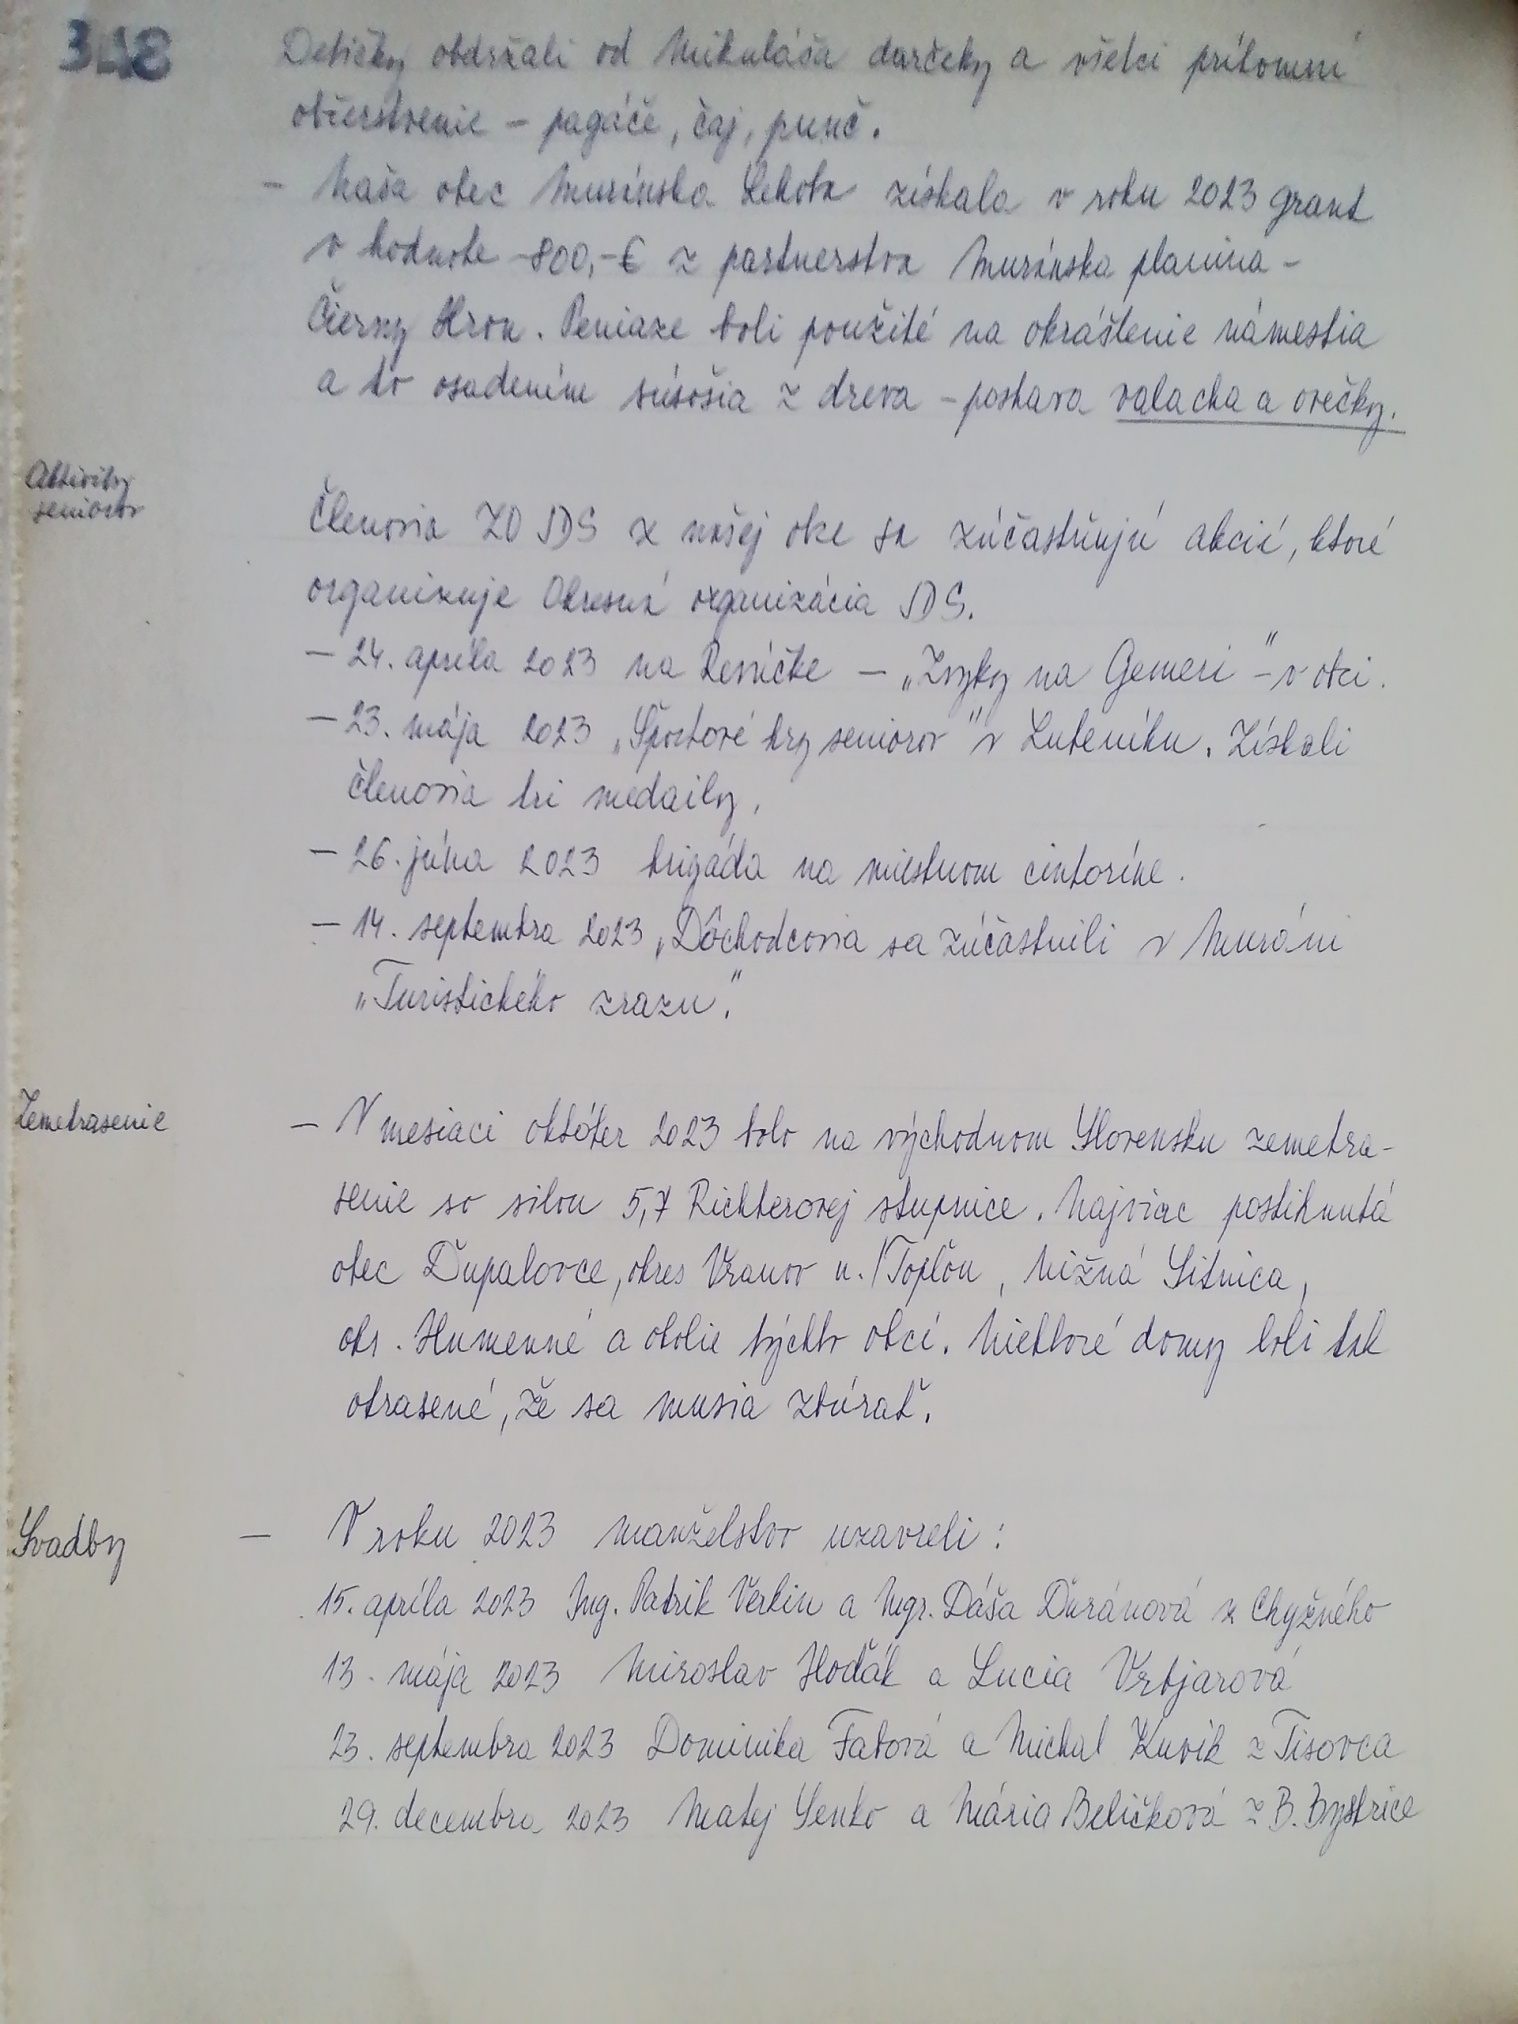 348
Detičky obdržali od Mikuláša darčeky a všetci prítomní
občerstvenie – pagáče, čaj, punč.
– Naša obec Muránska Lehota získala v roku 2023 grant
v hodnote 800,-€ z partnerstva Muránska planina –
Čierny Hron. Peniaze boli použité na okrášlenie námestia
a to osadením súsošia z dreva – postava valacha a ovečky.
Aktivity
seniorov
Členovia ZO JDS z našej obce sa zúčastňujú akcií, ktoré
organizuje Okresná organizácia JDS.
– 24. apríla 2023 na Revúčke – „Zvyky na Gemeri" – v obci.
– 23. mája 2023 „Športové hry seniorov" v Lubeníku. Získali
členovia tri medaily.
– 26. júna 2023 brigáda na miestnom cintoríne.
– 14. septembra 2023 „Dôchodcovia sa zúčastnili v Muráni
„Turistického zrazu".
Zemetrasenie
– V mesiaci október 2023 bolo na východnom Slovensku zemetra-
senie so silou 5,7 Richterovej stupnice. Najviac postihnutá
obec Ďupalovce, okres Vranov n./Topľou, Nižná Sitnica,
okr. Humenné a okolie týchto obcí. Niektoré domy boli tak
otrasené, že sa musia zbúrať.
Svadby
– V roku 2023 manželstvo uzavreli:
15. apríla 2023 Ing. Patrik Verbin a Mgr. Dáša Ďuránová z Chyžného
13. mája 2023 Miroslav Hoďák a Lucia Vrbjarová
23. septembra 2023 Dominika Fabová a Michal Kuvik z Tisovca
29. decembra 2023 Matej Senko a Mária Beličková z B. Bystrice